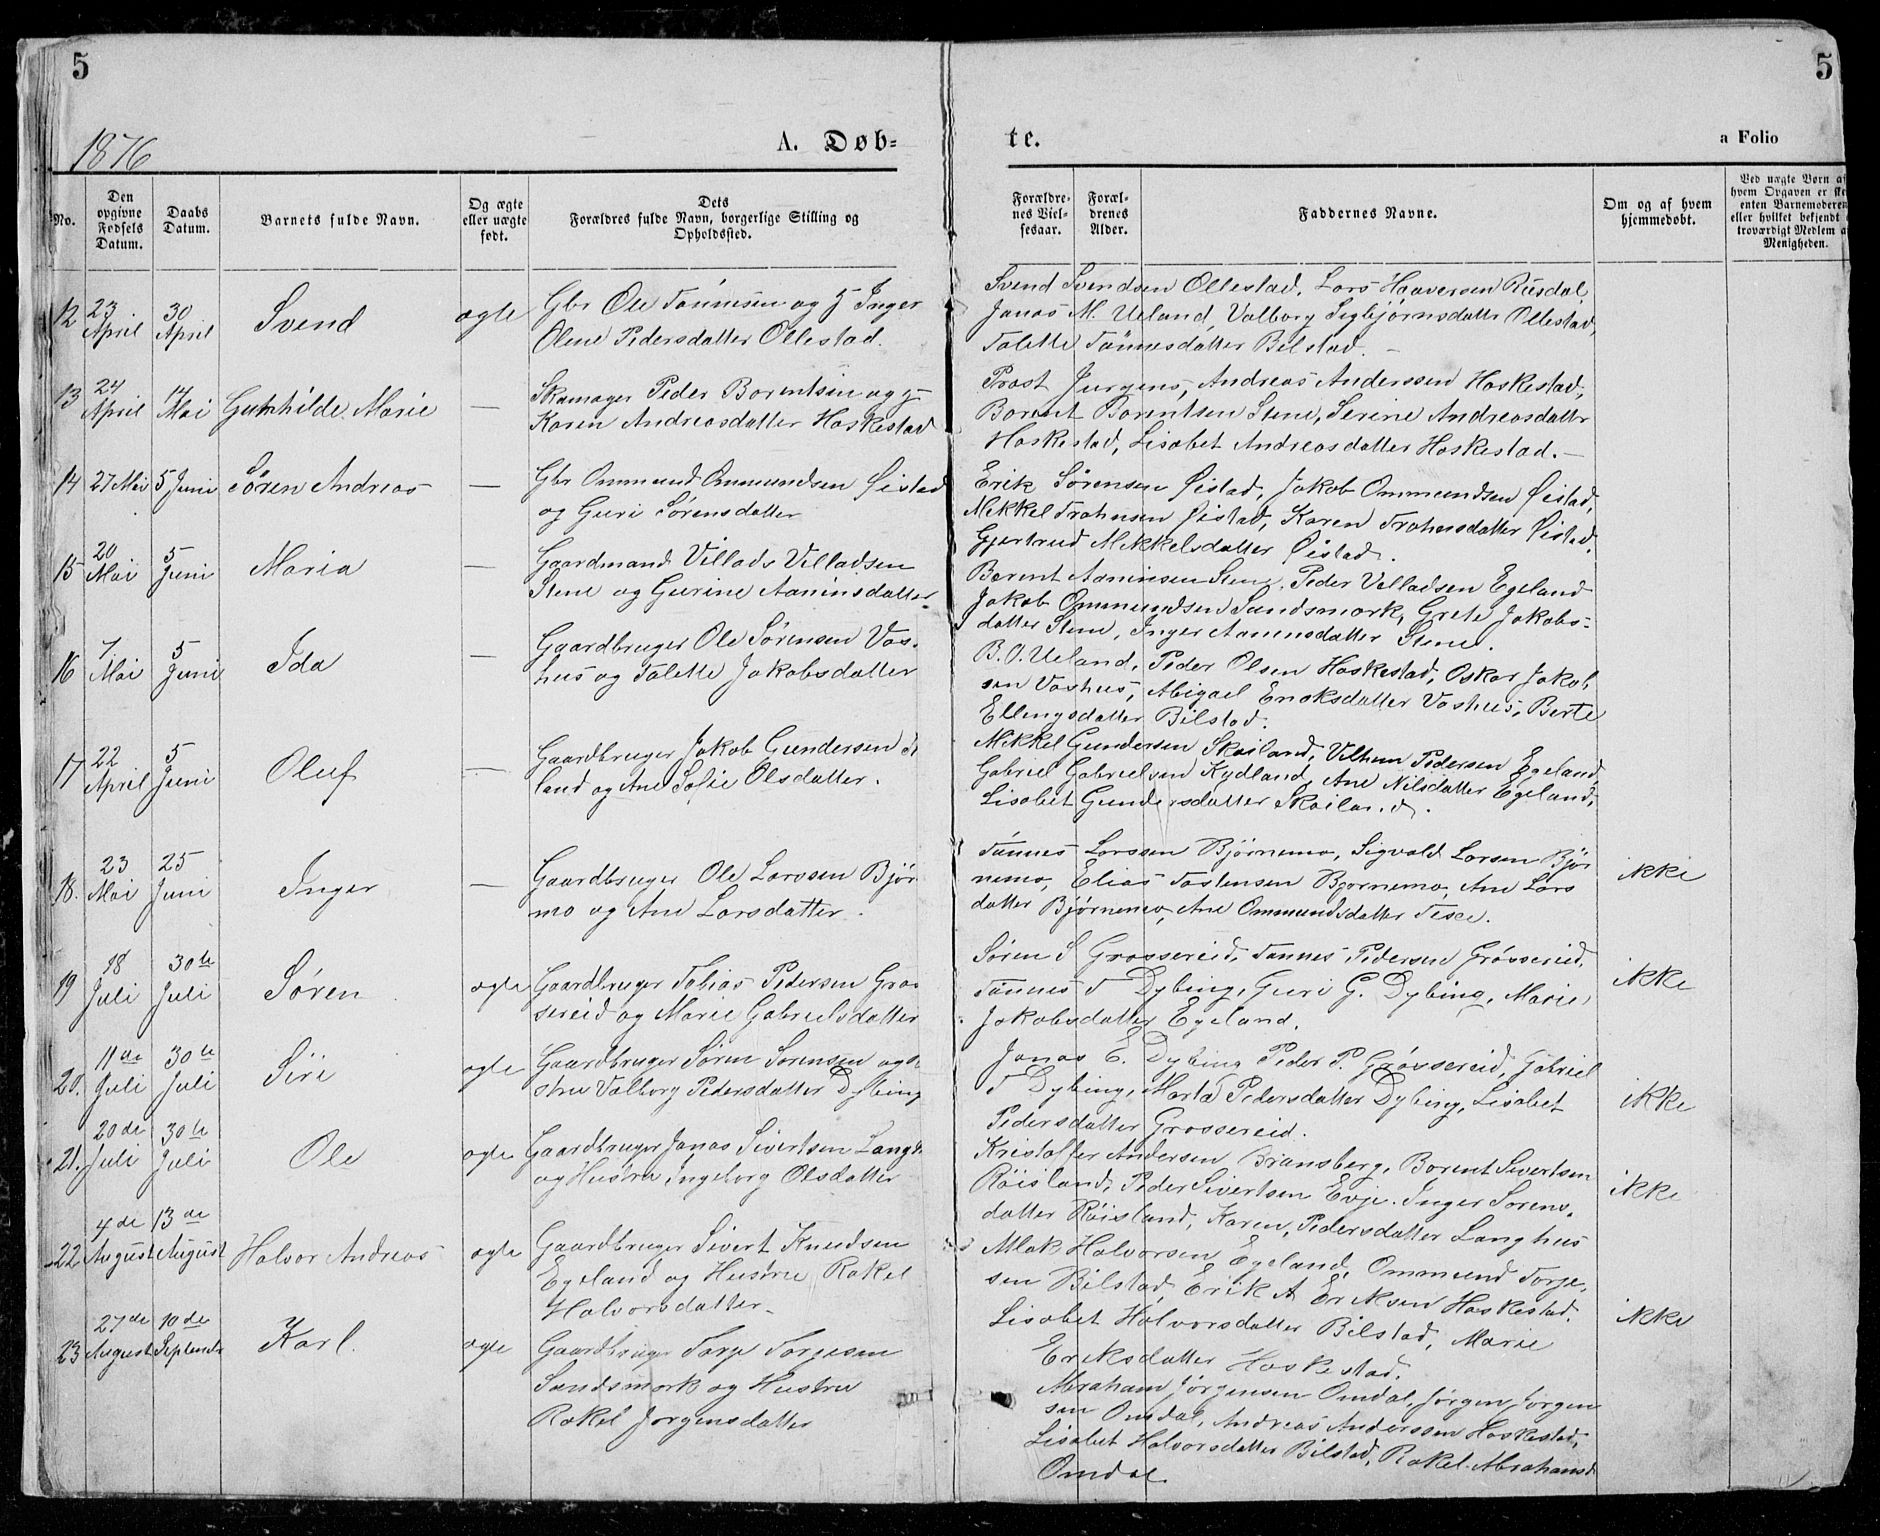 5
5
1876
A. Døb=
te.
a Folio
No.
Den opgivne Fødsels Datum.
Daabs Datum.
Barnets fulde Navn.
Og ægte eller uægte født.
Dets Forældres fulde Navn, borgerlige Stilling og Opholdssted.
Forældre-nes Viel-sesaar.
Foræl-drenes Alder.
Faddernes Navne.
Om og af hvem hjemmedøbt.
Ved uægte Børn af
hvem Opgaven er
enten Barnemoderen
eller hvilket bekjendt
troværdigt Medlem af
Menigheden.
12 23 April 30 April Svend ægte
Gbr Ole Tønnesen og H Inger
Oline Pedersdatter Ollestad.
Svend Svendsen Ollestad, Lars Haaversen Rusdal,
Jonas M. Ueland, Valborg Sigbjørnsdatter Ollestad,
Talette Tønnesdatter Bilstad. —
13 24 April 14 Mai Gunhilde Marie —
Skomager Peder Borentsen og H
Karen Andreasdatter Haskestad
Prost Jurgens, Andreas Anderssen Haskestad,
Borent Borentsen Stene, Serine Andreasdatter
Haskestad, Lisabet Andreasdatter Haskestad. —
14 27 Mai 5 Juni Søren Andreas —
Gbr Ommund Ommundsen Øistad
og Guri Sørensdatter
Erik Sørensen Øistad, Jakob Ommundsen Øistad,
Mikkel Trohnsen Øistad, Karen Trohnsdatter Øistad,
Gjertrud Mikkelsdatter Øistad.
15 20 Mai 5 Juni Maria —
Gaardmand Villads Villadsen
Stene og Gurine Aaninsdatter
Borent Aaninsen Stene, Peder Villadsen Egeland
Jakob Ommundsen Sandsmork, Grete Jakobs-
datter Stene, Inger Aaninsdatter Stene.
16 7. Mai 5 Juni Ida —
Gaardbruger Ole Sørensen Vas-
hus og Talette Jakobsdatter
B. O. Ueland, Peder Olsen Haskestad, Oskar Jakob
sen Vashus, Abigael Enoksdatter Vashus, Berte
Ellingsdatter Bilstad.
17 22 April 5 Juni Oluf —
Gaardbruger Jakob Gundersen
land og Ane Sofie Olsdatter.
Mikkel Gundersen Skailand, Vilhem Pedersen Egeland,
Gabriel Gabrielsen Kydland, Ane Nilsdatter Egeland,
Lisabet Gundersdatter Skailand.
18. 23 Mai 25 Juni Inger —
Gaardbruger Ole Larssen Bjør
mo og Ane Larsdatter.
Tønnes Larssen Bjørnemo, Sigvald Larsen Bjør
nemo, Elias Tostensen Bjørnemo, Ane Lars
datter Bjørnemo, Ane Ommundsdatter
ikke
19 18 Juli 30te Juli Søren ægte
Gaardbruger Tobias Pedersen Gros
sereid og Marie Gabrielsdatter
Søren S Grossereid, Tønnes Pedersen Grøssereid,
Tønnes T Dybing, Guri G. Dybing, Marie
Jakobsdatter Egeland.
ikke
20. 11de Juli 30te Juli Siri ægte
Gaardbruger Søren Sørensen og
stru Valborg Pedersdatter Dybing
Jonas E. Dybing Peder P. Grøssereid, Gabriel
T Dybing, Marta Pedersdatter Dybing, Lisabet
Pedersdatter Grossereid.
ikke
21. 20de Juli 30te Juli Ole ægte
Gaardbruger Jonas Sivertsen Langh
og Hustru Ingeborg Olsdatter
Kristoffer Andersen Bransberg, Borent Sivertsen
Røisland, Peder Sivertsen Evje. Inger Sørens-
datter Røisland, Karen Pedersdatter Langhus
ikke
22 4de August 13de August Halvor Andreas ægte
Gaardbruger Sivert Knudsen
Egeland og Hustru Rakel
Halvorsdatter
Mlak Halvorsen Egeland, Ommund Torje-
sen Bilstad, Erik A Eriksen Haskestad.
Lisabet Halvorsdatter Bilstad, Marie
Eriksdatter Haskestad.
ikke
23 27de August 10de Septemb Karl. ægte
Gaardbruger Torje Torjesen
Sandsmork og Hustru
Rakel Jørgensdatter
Abraham Jørgensen Omdal, Jørgen Jørgen
sen Omdal, Andreas Anderssen Haskestad,
Lisabet Halvorsdatter Bilstad, Rakel Abrahamsd
Omdal